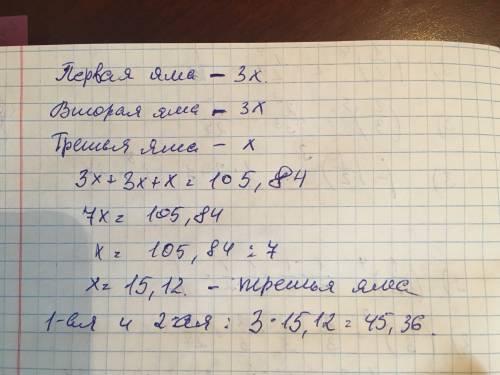 Первая яма – 3х.
Вторая яма – 3х
Третья яма – х
3х+3х+х = 105,84
7х = 105,84
х = 105,84 : 7
х = 15,12. – третья яма
1-ая и 2-ая : 3·15,12 = 45,36.